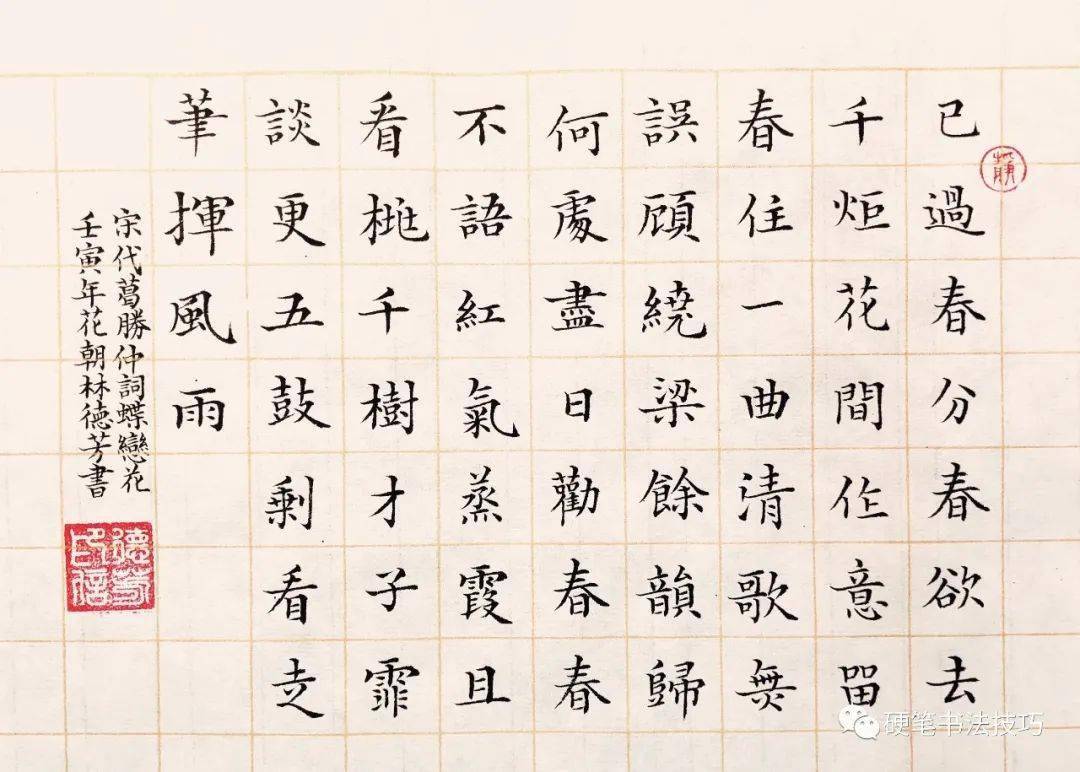 已過春分春欲去
千炬花間作意留
春住一曲清歌無
誤顧繞梁餘韻歸
何處盡日勸春春
不語紅氣蒸霞且
看桃千樹才子霏
談更五鼓剩看走
筆揮風雨
宋代葛勝仲詞蝶戀花
壬寅年花朝林德芳書
德芳印信
硬笔书法技巧